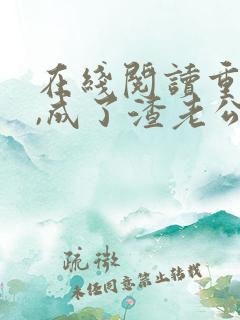 在线阅读重
,成了渣老公
疏微
未经同意禁止转载